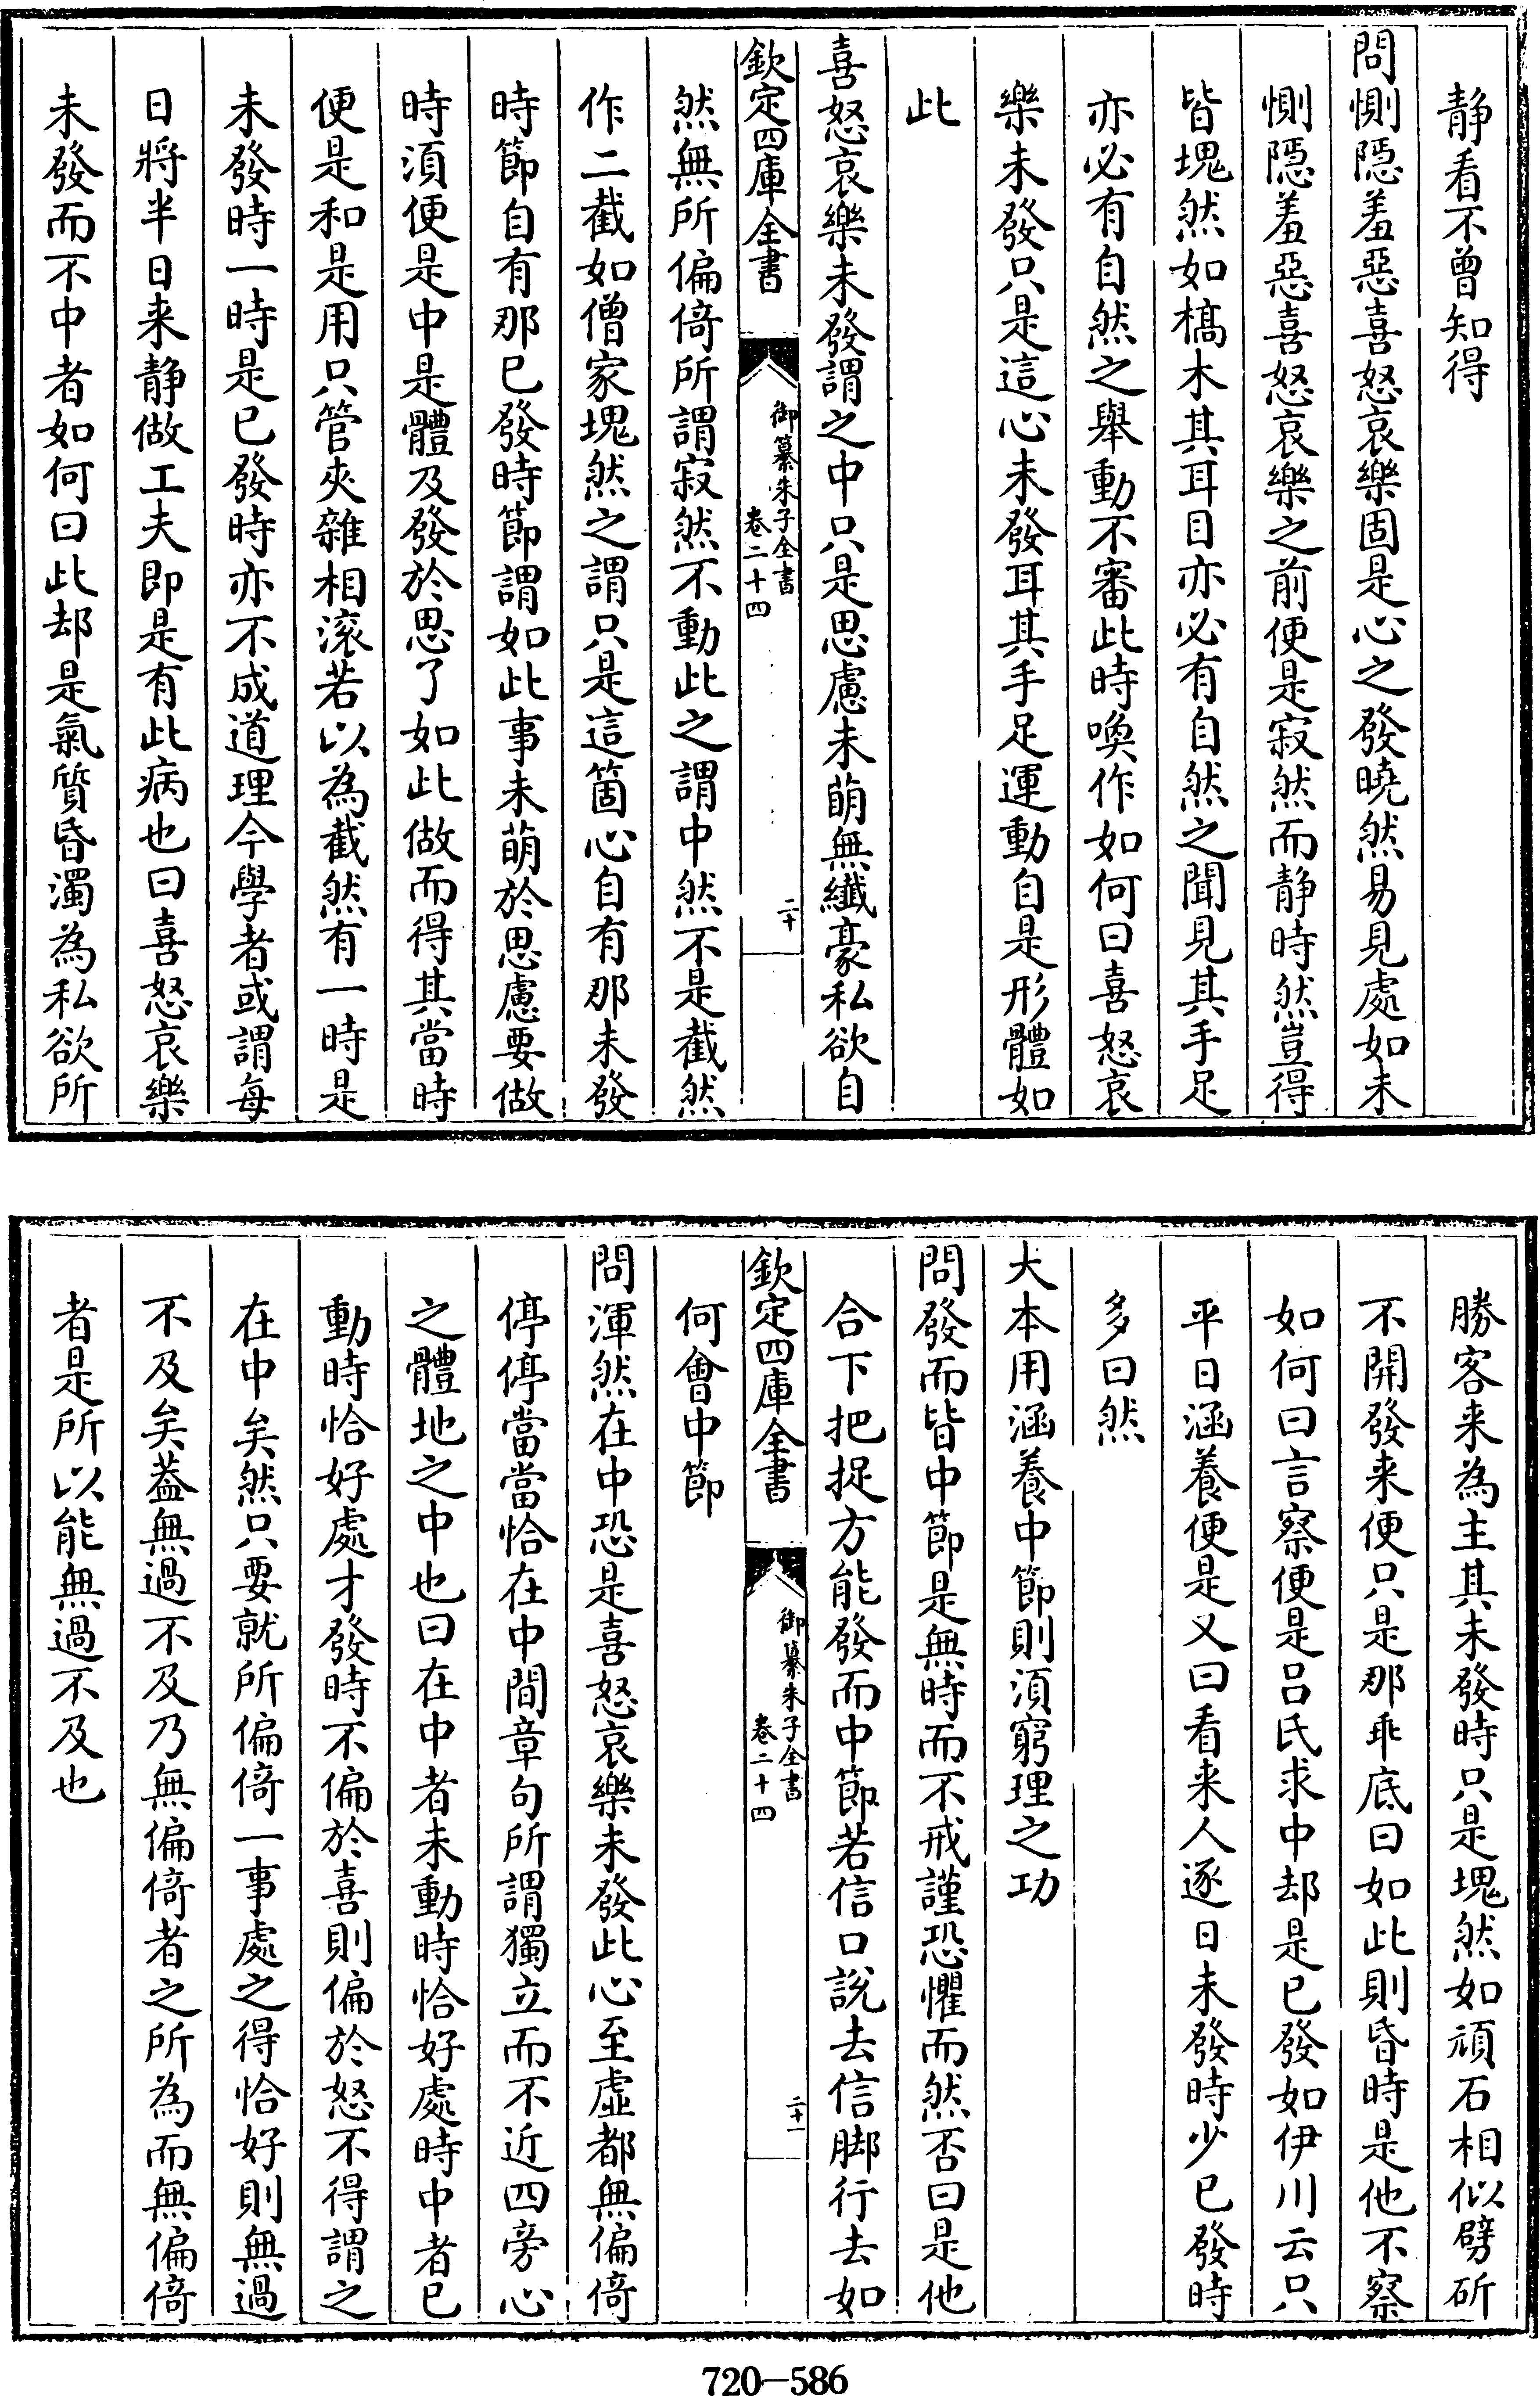 静看不曾知得
問惻隠羞惡喜怒哀樂固是心之發曉然易見處如未
惻隠羞惡喜怒哀樂之前便是寂然而静時然豈得
皆塊然如槁木其耳目亦必有自然之聞見其手足
亦必有自然之舉動不審此時喚作如何曰喜怒哀
樂未發只是這心未發耳其手足運動自是形體如
此
喜怒哀樂未發謂之中只是思慮未萌無纖豪私欲自
欽定四庫全書
御纂朱子全書
卷二十四
二十
然無所偏倚所謂寂然不動此之謂中然不是截然
作二截如僧家塊然之謂只是這箇心自有那未發
時節自有那已發時節謂如此事未萌於思慮要做
時須便是中是體及發於思了如此做而得其當時
便是和是用只管夾雜相滚若以為截然有一時是
未發時一時是已發時亦不成道理今學者或謂每
日將半日来静做工夫即是有此病也曰喜怒哀樂
未發而不中者如何曰此却是氣質昏濁為私欲所
勝客来為主其未發時只是塊然如頑石相似劈斫
不開發来便只是那乖底曰如此則昏時是他不察
如何曰言察便是吕氏求中却是已發如伊川云只
平日涵養便是又曰看来人逐日未發時少已發時
多曰然
大本用涵養中節則須窮理之功
問發而皆中節是無時而不戒謹恐懼而然否曰是他
合下把捉方能發而中節若信口說去信脚行去如
欽定四庫全書
御纂朱子全書
卷二十四
二十一
何會中節
問渾然在中恐是喜怒哀樂未發此心至虛都無偏倚
停停當當恰在中間章句所謂獨立而不近四旁心
之體地之中也曰在中者未動時恰好處時中者已
動時恰好處才發時不偏於喜則偏於怒不得謂之
在中矣然只要就所偏倚一事處之得恰好則無過
不及矣葢無過不及乃無偏倚者之所為而無偏倚
者是所以能無過不及也
720-586